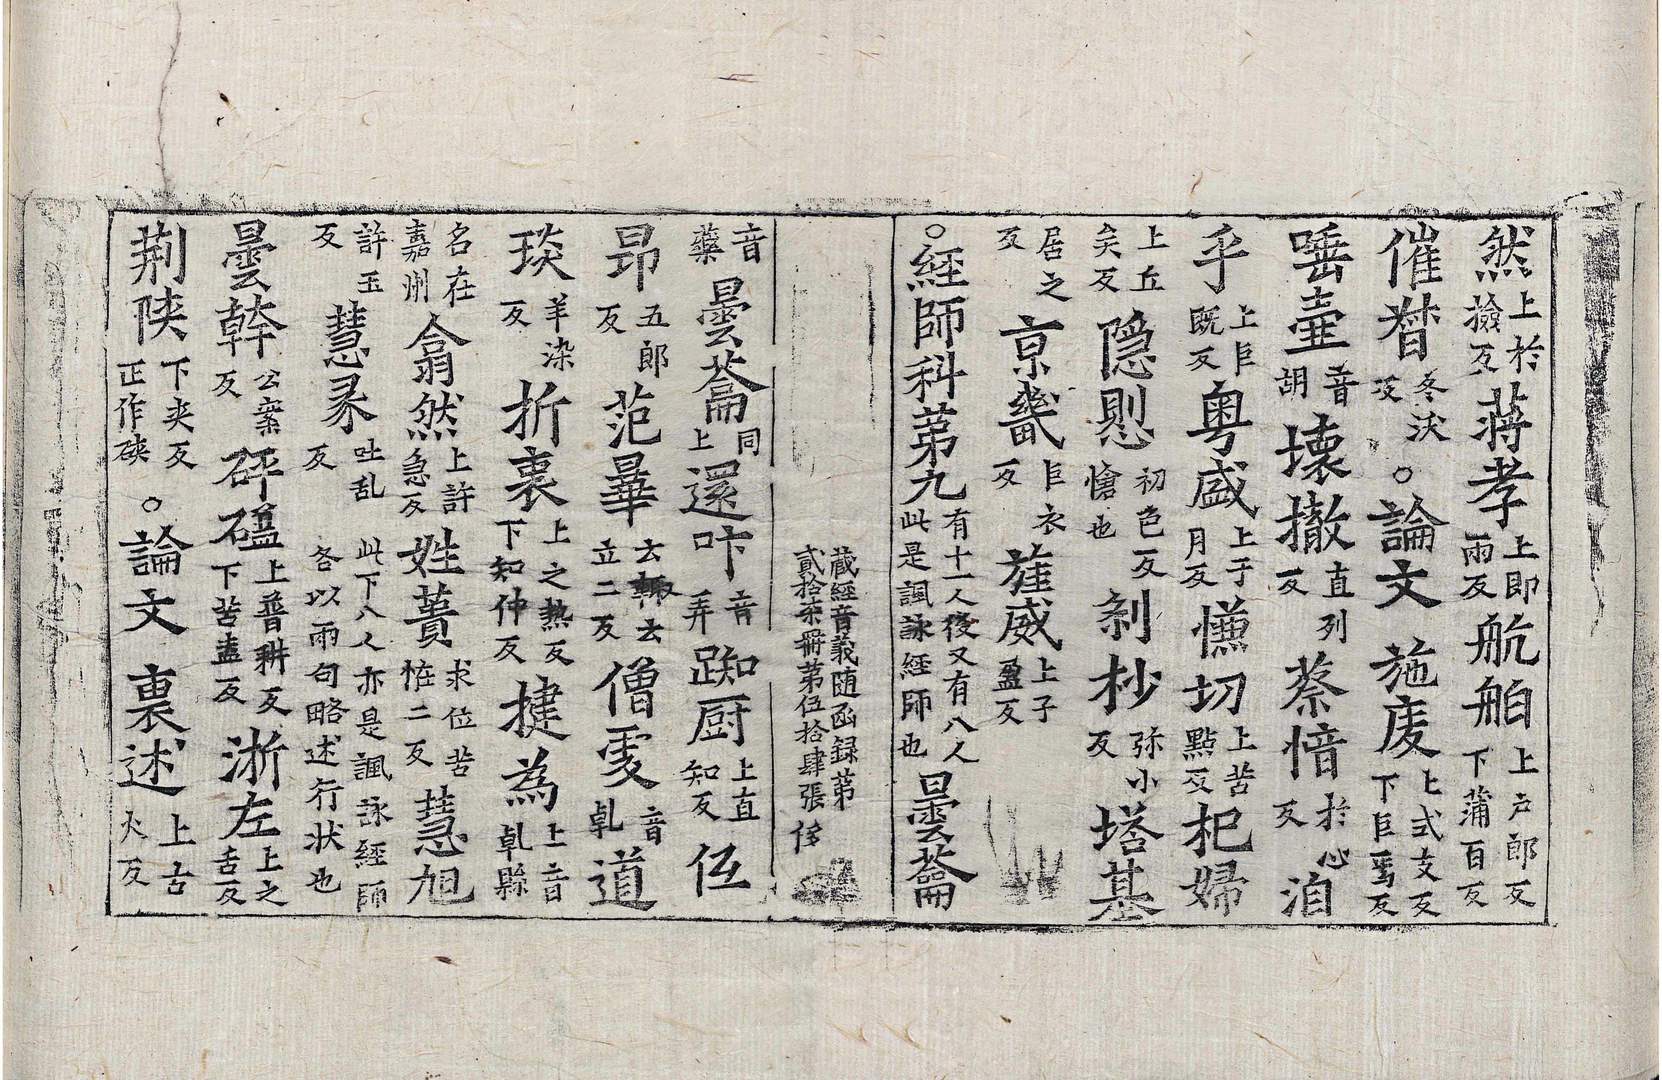 然上於撿反蔣孝上即兩反航舶上戶郎反下蒲百反
催督冬沃反○論文施度上式支反下巨焉反
唾壷音胡壊撤直列反蔡愔於心反洎
乎上巨既反粤盛上于月反憔切上苦點反杞婦
上丘矣反隐惻初色反愴也剝杪弥小反塔基
居之反京畿巨衣反旌威上子盈反
○經師科苐九有十一人後又有八人此是諷詠經師也曇蘥
藏經音義随函録苐貳拾柒冊苐伍拾肆張 侈
音藥曇蘥同上還吽音弄踟厨上直知反伍
昂五郎反范曅云輒云立二反僧䖍音乹道
琰羊染反折衷上之熱反下知仲反揵為上音乹縣
名在嘉州翕然上許急反姓蕢求位苦恠二反慧旭
許玉反慧彖吐乱反此下八人亦是諷詠經師各以兩句略述行状也
曇幹公案反砰磕上普耕反下苦盍反淛左上之舌反
荆陕下夾反正作硤○論文裏述上古火反